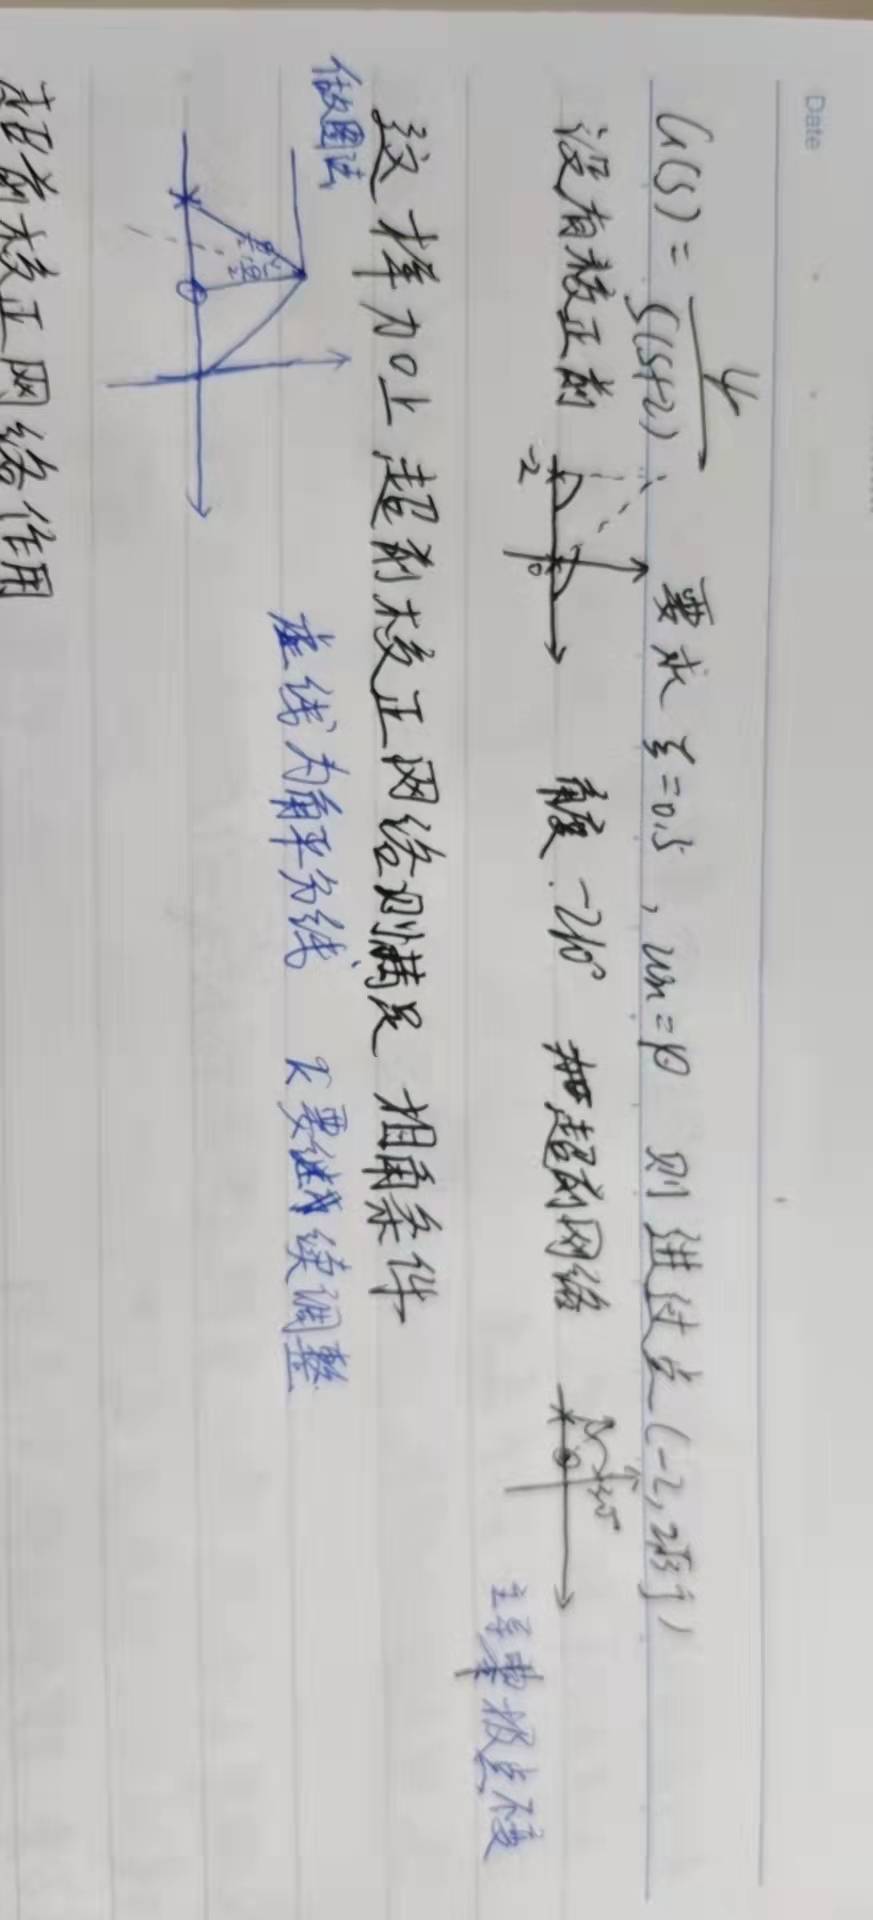 Date
G(s) = 4/(s(s+2)) 要求 ξ=0.5, ωn=4 则进过点(-2, 2√3j)
没有校正前 -2 0 角度 -210° 加超前网络 30°
主导零极点不变
这样加上超前校正网络则满足 相角条件
做图法 虚线为角平分线 K要继续调整
超前校正网络作用